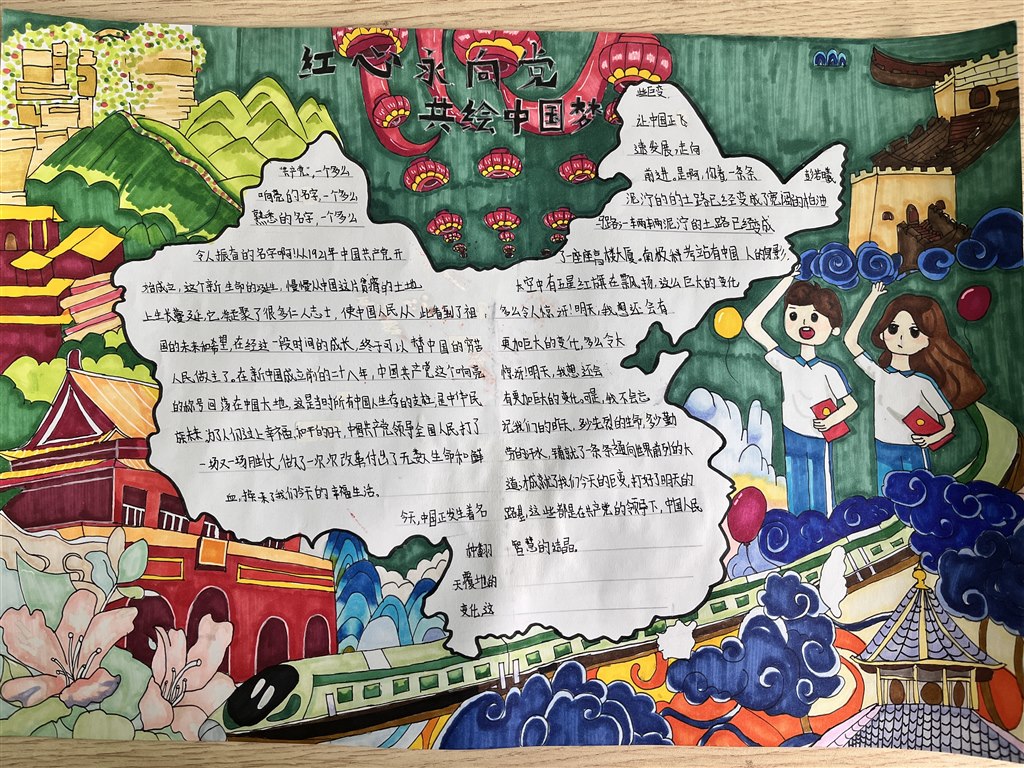 红心永向党
共绘中国梦
彭若曦
"共产党",一个多么
响亮的名字,一个多么
熟悉的名字,一个多么
令人振奋的名字啊!从1921年中国共产党开
始成立,这个新生命的诞生,慢慢从中国这片贫瘠的土地
上生长蔓延,它凝聚了很多仁人志士,使中国人民从此看到了祖
国的未来和希望,在经过一段时间的成长,终于可以替中国的穷苦
人民做主了。在新中国成立前的二十八年,中国共产党这个响亮
的称号回荡在中国大地,这是当时所有中国人生存的支柱,是中华民
族魂,为了人们过上幸福,和平的日子,中国共产党领导全国人民打了
一场又一场胜仗,做了一次次改革付出了无数生命和鲜
血,换来了我们今天的幸福生活。
今天,中国正发生着各
种翻
天覆地的
变化,这
些巨变,
让中国正飞
速发展,走向
前进。是啊,你看一条条
泥泞的的土路已经变成了宽阔的柏油
路,一车辆车辆泥泞的土路已经变成
了一座座高楼大厦。南极科考站有中国人的身影,
太空中有五星红旗在飘扬,这么巨大的变化
多么令人惊讶!明天,我想还会有
更加巨大的变化,多么令人
惊讶!明天,我想还会
有更加巨大的变化,可是,我不会忘
记我们的昨天,多少先烈的生命,多少勤
劳的汗水,铺就了一条条通向世界前列的大
道,构成就了我们今天的巨变,打好了明天的
路基,这些都是在共产党的领导下,中国人民
智慧的结晶。